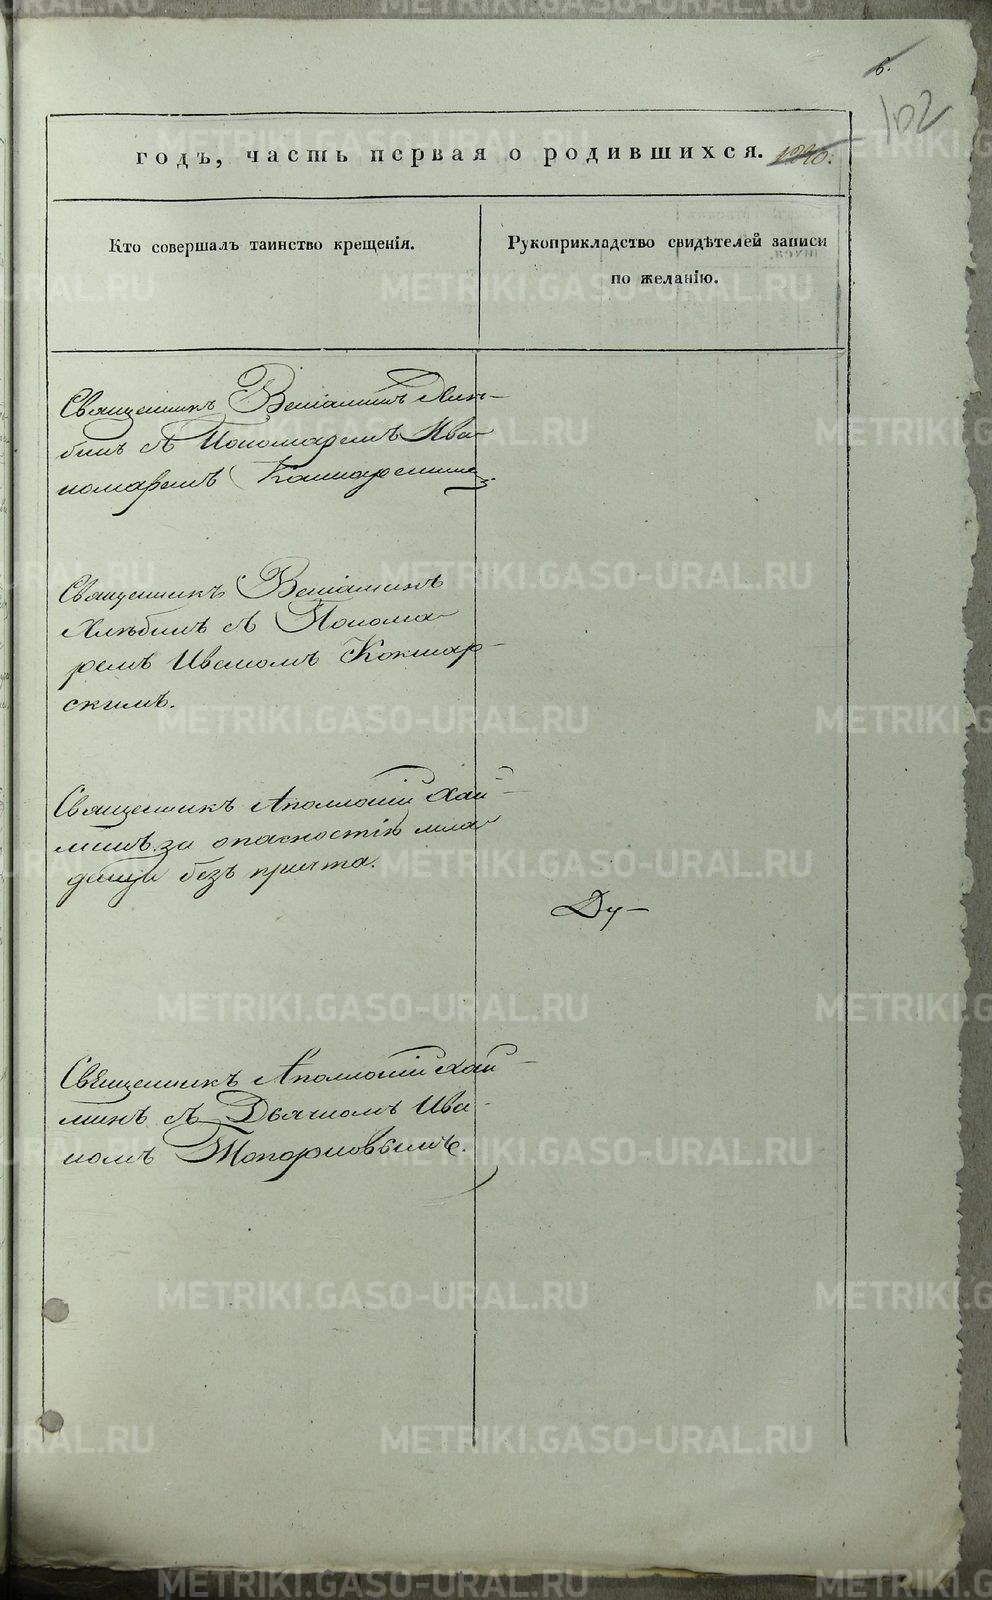 6.
102
годъ, часть первая о родившихся.
Кто совершалъ таинство крещенія.
Рукоприкладство свидѣтелей записи
по желанію.
Священникъ Веніаминъ Хлѣ-
бинъ съ Пономаремъ Ива-
Священникъ Веніаминъ
Хлѣбинъ съ Понома
ремъ Иваномъ Кокшар-
скимъ.
Священникъ Аполлоній Хай
минъ за опасностію мла
денца безъ причта.
Ду-
Священникъ Аполлоній Хай
минъ съ Дьячкомъ Ива-
номъ Топорковымъ.
METRIKI.GASO-URAL.RU